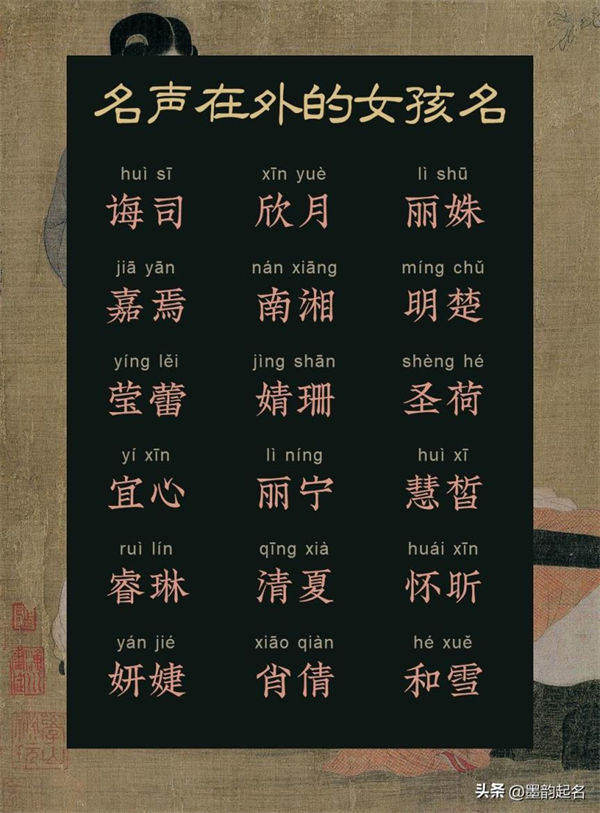 名声在外的女孩名
huì sī xīn yuè lì shū
诲司 欣月 丽姝
jiā yān nán xiāng míng chǔ
嘉焉 南湘 明楚
yíng lěi jìng shān shèng hé
莹蕾 婧珊 圣荷
yí xīn lì níng huì xī
宜心 丽宁 慧皙
ruì lín qīng xià huái xīn
睿琳 清夏 怀昕
yán jié xiāo qiàn hé xuě
妍婕 肖倩 和雪
头条 @墨韵起名